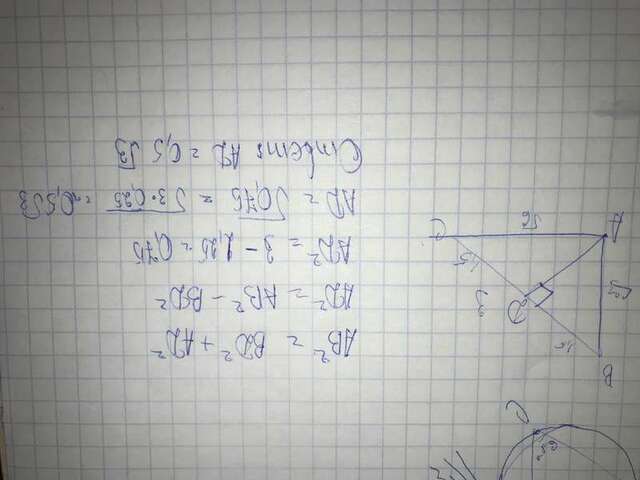 AB² = BD² + AD²
AD² = AB² - BD²
AD² = 3 - 2,25 = 0,75
AD = √0,75 = √3·0,25 = 0,5√3
Ответ AD = 0,5 √3
B
1,5
D
3
1,5
C
√3
A
√6